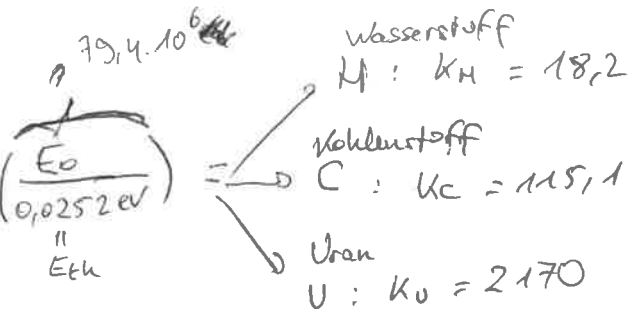 79,4.10⁶
(E₀ / 0,0252 eV) =
"
Eth
Wasserstoff
H : K_H = 18,2
Kohlenstoff
C : K_C = 115,1
Uran
U : K_U = 2170